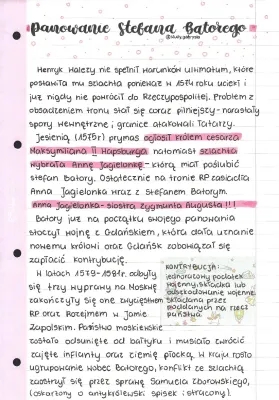 Panowanie Stefana Batorego
Henryk Walezy nie spełnił warunków ultimatum, które
postawiła mu szlachta ponieważ w 1574 roku uciekł i
już nigdy nie powrócił do Rzeczypospolitej. Problem z
obsadzeniem tronu stał się coraz pilniejszy- narastały
spory wewnętrzne i granice atakowali Tatarzy.
Jesienią (1575r) prymas ogłosił królem cesarza
Maksymiliana II Habsburga natomiast szlachta
wybrała Annę Jagiellonkę - którą miał poślubić
Stefan Batory. Ostatecznie na tronie RP zasiadła
Anna Jagiellonka wraz z Stefanem Batorym.
Anna Jagiellonka - siostra Zygmunta Augusta !!!
Batory już na początku swojego panowania
stoczył wojnę z Gdańskiem, która dała uznanie
nowemu królowi oraz Gdańsk zobowiązał się
zapłacić kontrybucję.
W latach 1579-1581r. odbyły
się trzy wyprawy na Moskwę
zakończyły się one zwycięstwem
RP oraz Rozejmem w Jamie
Zapolskim. Państwo moskiewskie
zostało odsunięte od Bałtyku i musiało zwrócić
zajęte Inflanty oraz ziemię płocką. W kraju rosło
ugrupowanie wobec Batorego, konflikt ze szlachtą
zaostrzył się przez sprawę Samuela Zborowskiego,
(oskarżony o antykrólewski spisek i stracony).
KONTRYBUCJA:
jednorazowy podatek
wojenny, składka lub
odszkodowanie wojenne
składana przez
podbitych na rzecz
państwa